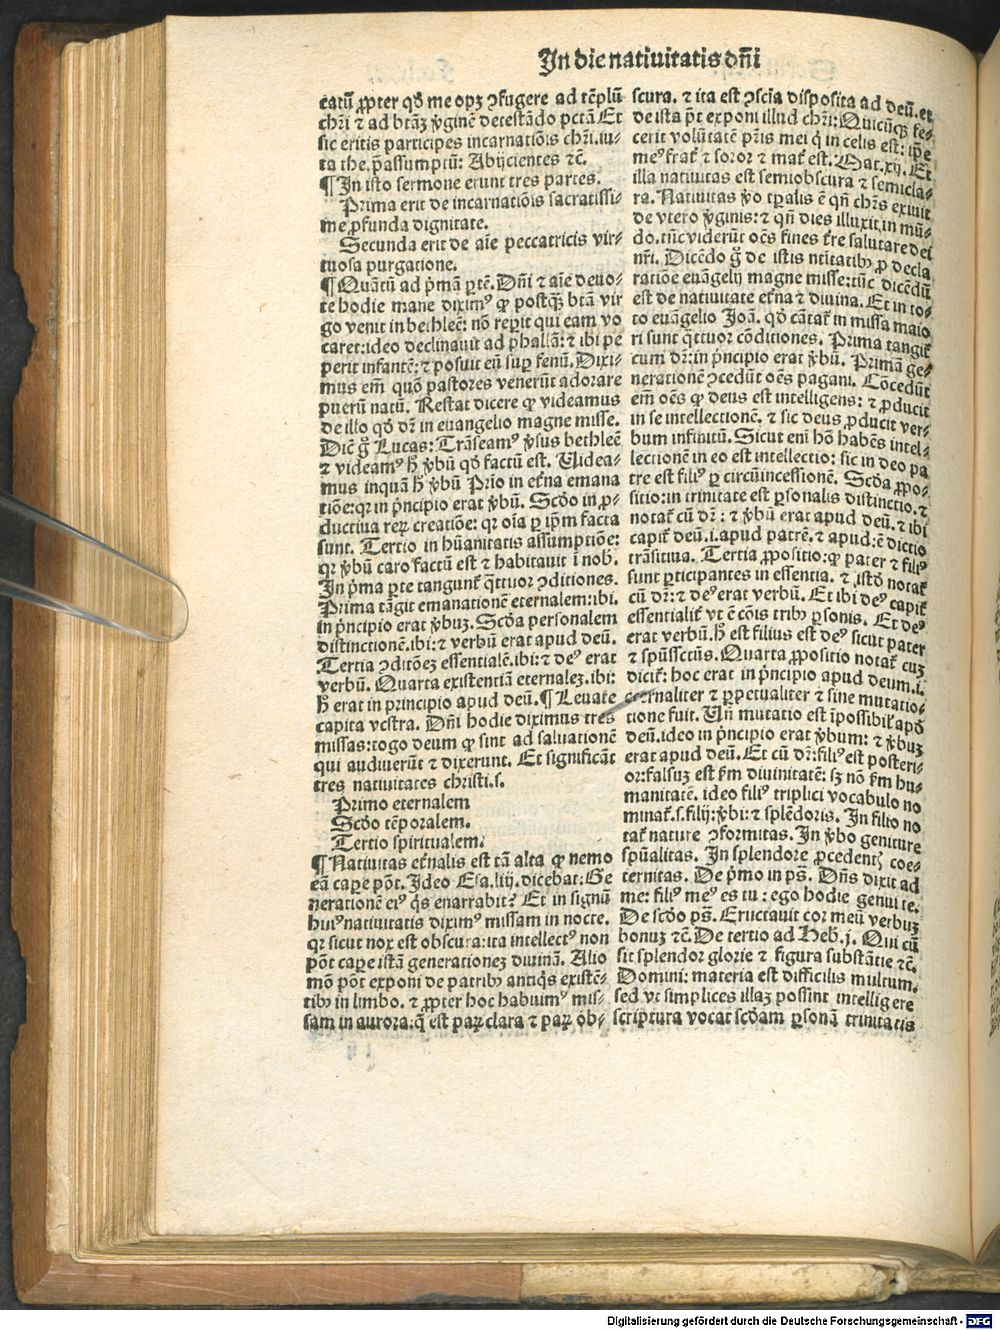 In die natiuitatis dñi
catũ ꝓpter qđ me opꝫ ꝯfugere ad tẽplũ
chr̃i ⁊ ad btãꝫ ꝟginẽ detestãdo pctã Et
sic eritis participes incarnatiõis chr̃i. iu-
ta the. p̃assumptũ: Abijcientes ⁊c̃.
¶ In isto sermone erunt tres partes.
Prima erit de incarnatiõis sacratissi-
me ꝓfunda dignitate.
Secunda erit de aĩe peccatricis vir-
tuosa purgatione.
¶ Quãtũ ad p̃mã ꝑtẽ. Dñi ⁊ aĩe deuo-
te hodie mane diximꝰ ꝙ postꝗ̃ btã vir
go venit in bethleẽ: nõ reꝑit qui eam vo
caret: ideo declinauit ad phallã: ⁊ ibi pe
perit infantẽ: ⁊ posuit eũ suꝑ fenũ. Dixi-
mus em̃ quõ pastores venerũt adorare
puerũ natũ. Restat dicere ꝙ videamus
de illo qđ dr̃ in euangelio magne misse.
Dic̃ g̃ Lucas: Trãseamꝰ ꝟsus bethleẽ
⁊ videamꝰ h̃ ꝟbũ qđ factũ est. Uidea-
mus inquã h̃ ꝟbũ Prio in et̃na emana
tiõe: qꝛ in p̃ncipio erat ꝟbũ. Scđo in ꝓ-
ductiua reꝝ creatiõe: qꝛ oĩa ꝑ ip̃m facta
sunt. Tertio in hũanitatis assumptiõe:
qꝛ ꝟbũ caro factũ est ⁊ habitauit ĩ nob̃.
In p̃ma ꝑte tangunt̃ q̃ttuor ꝯditiones.
Prima tãgit emanationẽ eternalem: ibi.
in p̃ncipio erat ꝟbuꝫ. Scđa personalem
distinctionẽ. ibi: ⁊ verbũ erat apud deũ.
Tertia ꝯditõeꝫ essentialẽ. ibi: ⁊ deꝰ erat
verbũ. Quarta existentiã eternaleꝫ. ibi:
h̃ erat in principio apud deũ. ¶ Leuate
capita vestra. Dñi hodie diximus tres
missas: rogo deum ꝙ sint ad saluationẽ
qui audiuerũt ⁊ dixerunt. Et significãt
tres natiuitates christi. s.
Primo eternalem
Scđo tẽporalem.
Tertio spiritualem.
¶ Natiuitas et̃nalis est tã alta ꝙ nemo
eã caꝑe põt. Ideo Esa. liij. dicebat: Ge
nerationẽ eiꝰ q̃s enarrabit? Et in signũ
huiꝰ natiuitatis diximꝰ missam in nocte.
qꝛ sicut nox est obscura: ita intellectꝰ non
põt caꝑe istã generationeꝫ diuinã. Alio
mõ põt exponi de patribꝰ antiq̃s existẽ-
tibꝰ in limbo. ⁊ ꝓpter hoc habuimꝰ mis-
sam in aurora: q̃ est paꝝ clara ⁊ paꝝ ob-
scura. ⁊ ita est ꝯscĩa disposita ad deũ. et
de ista p̃t exponi illud chr̃i: Quicũqꝫ fe-
cerit volũtatẽ pr̃is mei q̃ in celis est: ip̃e
meꝰ frat̃ ⁊ soror ⁊ mat̃ est. Mat. xij. Et
illa natiuitas est semiobscura ⁊ semicla-
ra. Natiuitas ꝟo tp̃alis ẽ qñ chr̃s exiuit
de vtero ꝟginis: ⁊ qñ dies illuxit in mũ-
do. tũc viderũt oẽs fines t̃re salutare dei
nr̃i. Dicẽdo g̃ de istis ntitatibꝰ ꝓ decla
ratiõe euãgelij magne misse: tũc dicẽdũ
est de natiuitate et̃na ⁊ diuina. Et in to-
to euãgelio Joã. qđ cãtat̃ in missa maio
ri sunt q̃ttuor cõditiones. Prima tangit̃
cum dr̃: in p̃ncipio erat ꝟbũ. Primã ge-
nerationẽ ꝯcedũt oẽs pagani. Cõcedũt
em̃ oẽs ꝙ deus est intelligens: ⁊ ꝓducit
in se intellectionẽ. ⁊ sic deus ꝓducit ver-
bum infinitũ. Sicut eni hõ habẽs intel-
lectionẽ in eo est intellectio: sic in deo pa
tre est filiꝰ ꝑ circũincessionẽ. Scđa ꝓpo-
sitio: in trinitate est ꝑsonalis distinctio. ⁊
notat̃ cũ dr̃: ⁊ ꝟbũ erat apud deũ. ⁊ ibi
capit̃ deũ. i. apud patrẽ. ⁊ apud: ẽ dictio
trãsitiua. Tertia ꝓpositio: ꝙ pater ⁊ filiꝰ
sunt ꝑticipantes in essentia. ⁊ istđ notat̃
cũ dr̃: ⁊ deꝰ erat verbũ. Et ibi deꝰ capit̃
essentialit̃ vt ẽ cõis tribꝰ ꝑsonis. Et deꝰ
erat verbũ. h̃ est filius est deꝰ sicut pater
⁊ spũssctũs. Quarta ꝓpositio notat̃ cuꝫ
dicit̃: hoc erat in p̃ncipio apud deum. i.
eternaliter ⁊ ꝑpetualiter ⁊ sine mutatio-
tione fuit. Uñ mutatio est ĩpossibil̃ apđ
deũ. ideo in p̃ncipio erat ꝟbum: ⁊ ꝟbuꝫ
erat apud deũ. Et cũ dr̃: filiꝰ est posteri-
or: falsuꝫ est f̃m diuinitatẽ: sꝫ nõ f̃m hu-
manitatẽ. ideo filiꝰ triplici vocabulo no
minat̃. s. filij: ꝟbi: ⁊ splẽdoris. In filio no
tat̃ nature ꝯformitas. In ꝟbo geniture
spũalitas. In splendore ꝓcedentꝭ coe-
ternitas. De p̃mo in ps̃. Dñs dixit ad
me: filiꝰ meꝰ es tu: ego hodie genui te.
De scđo ps̃. Eructauit cor meũ verbuꝫ
bonuꝫ ⁊c̃. De tertio ad Heb̃. j. Qui cũ
sit splendor glorie ⁊ figura substãtie ⁊c̃.
Domini: materia est difficilis multum.
sed vt simplices illaꝫ possint intelligere
scriptura vocat scđam ꝑsonã trinitatis
Digitalisierung gefördert durch die Deutsche Forschungsgemeinschaft - DFG